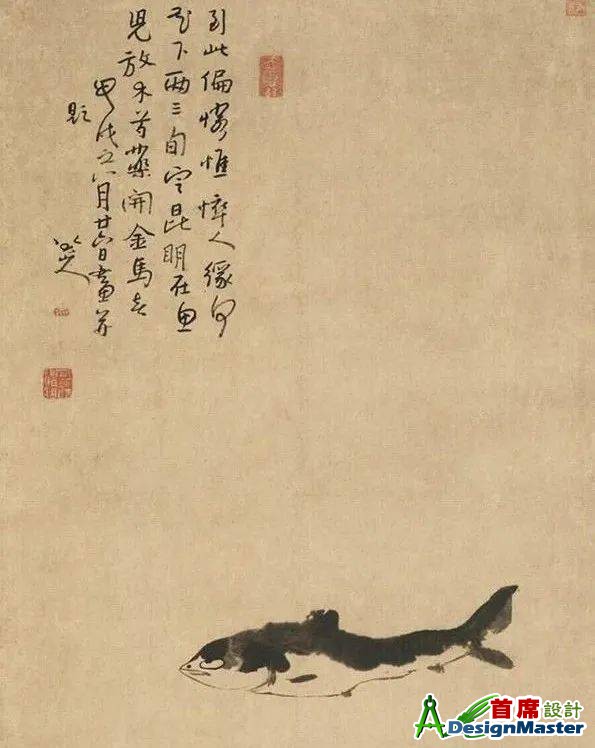 到此偏憐憔悴人緣何
花下兩三旬定昆明在魚
兒放木芍藥開金馬春
甲戌之月廿六日畫并
題
八大山人
首席設計
DesignMaster